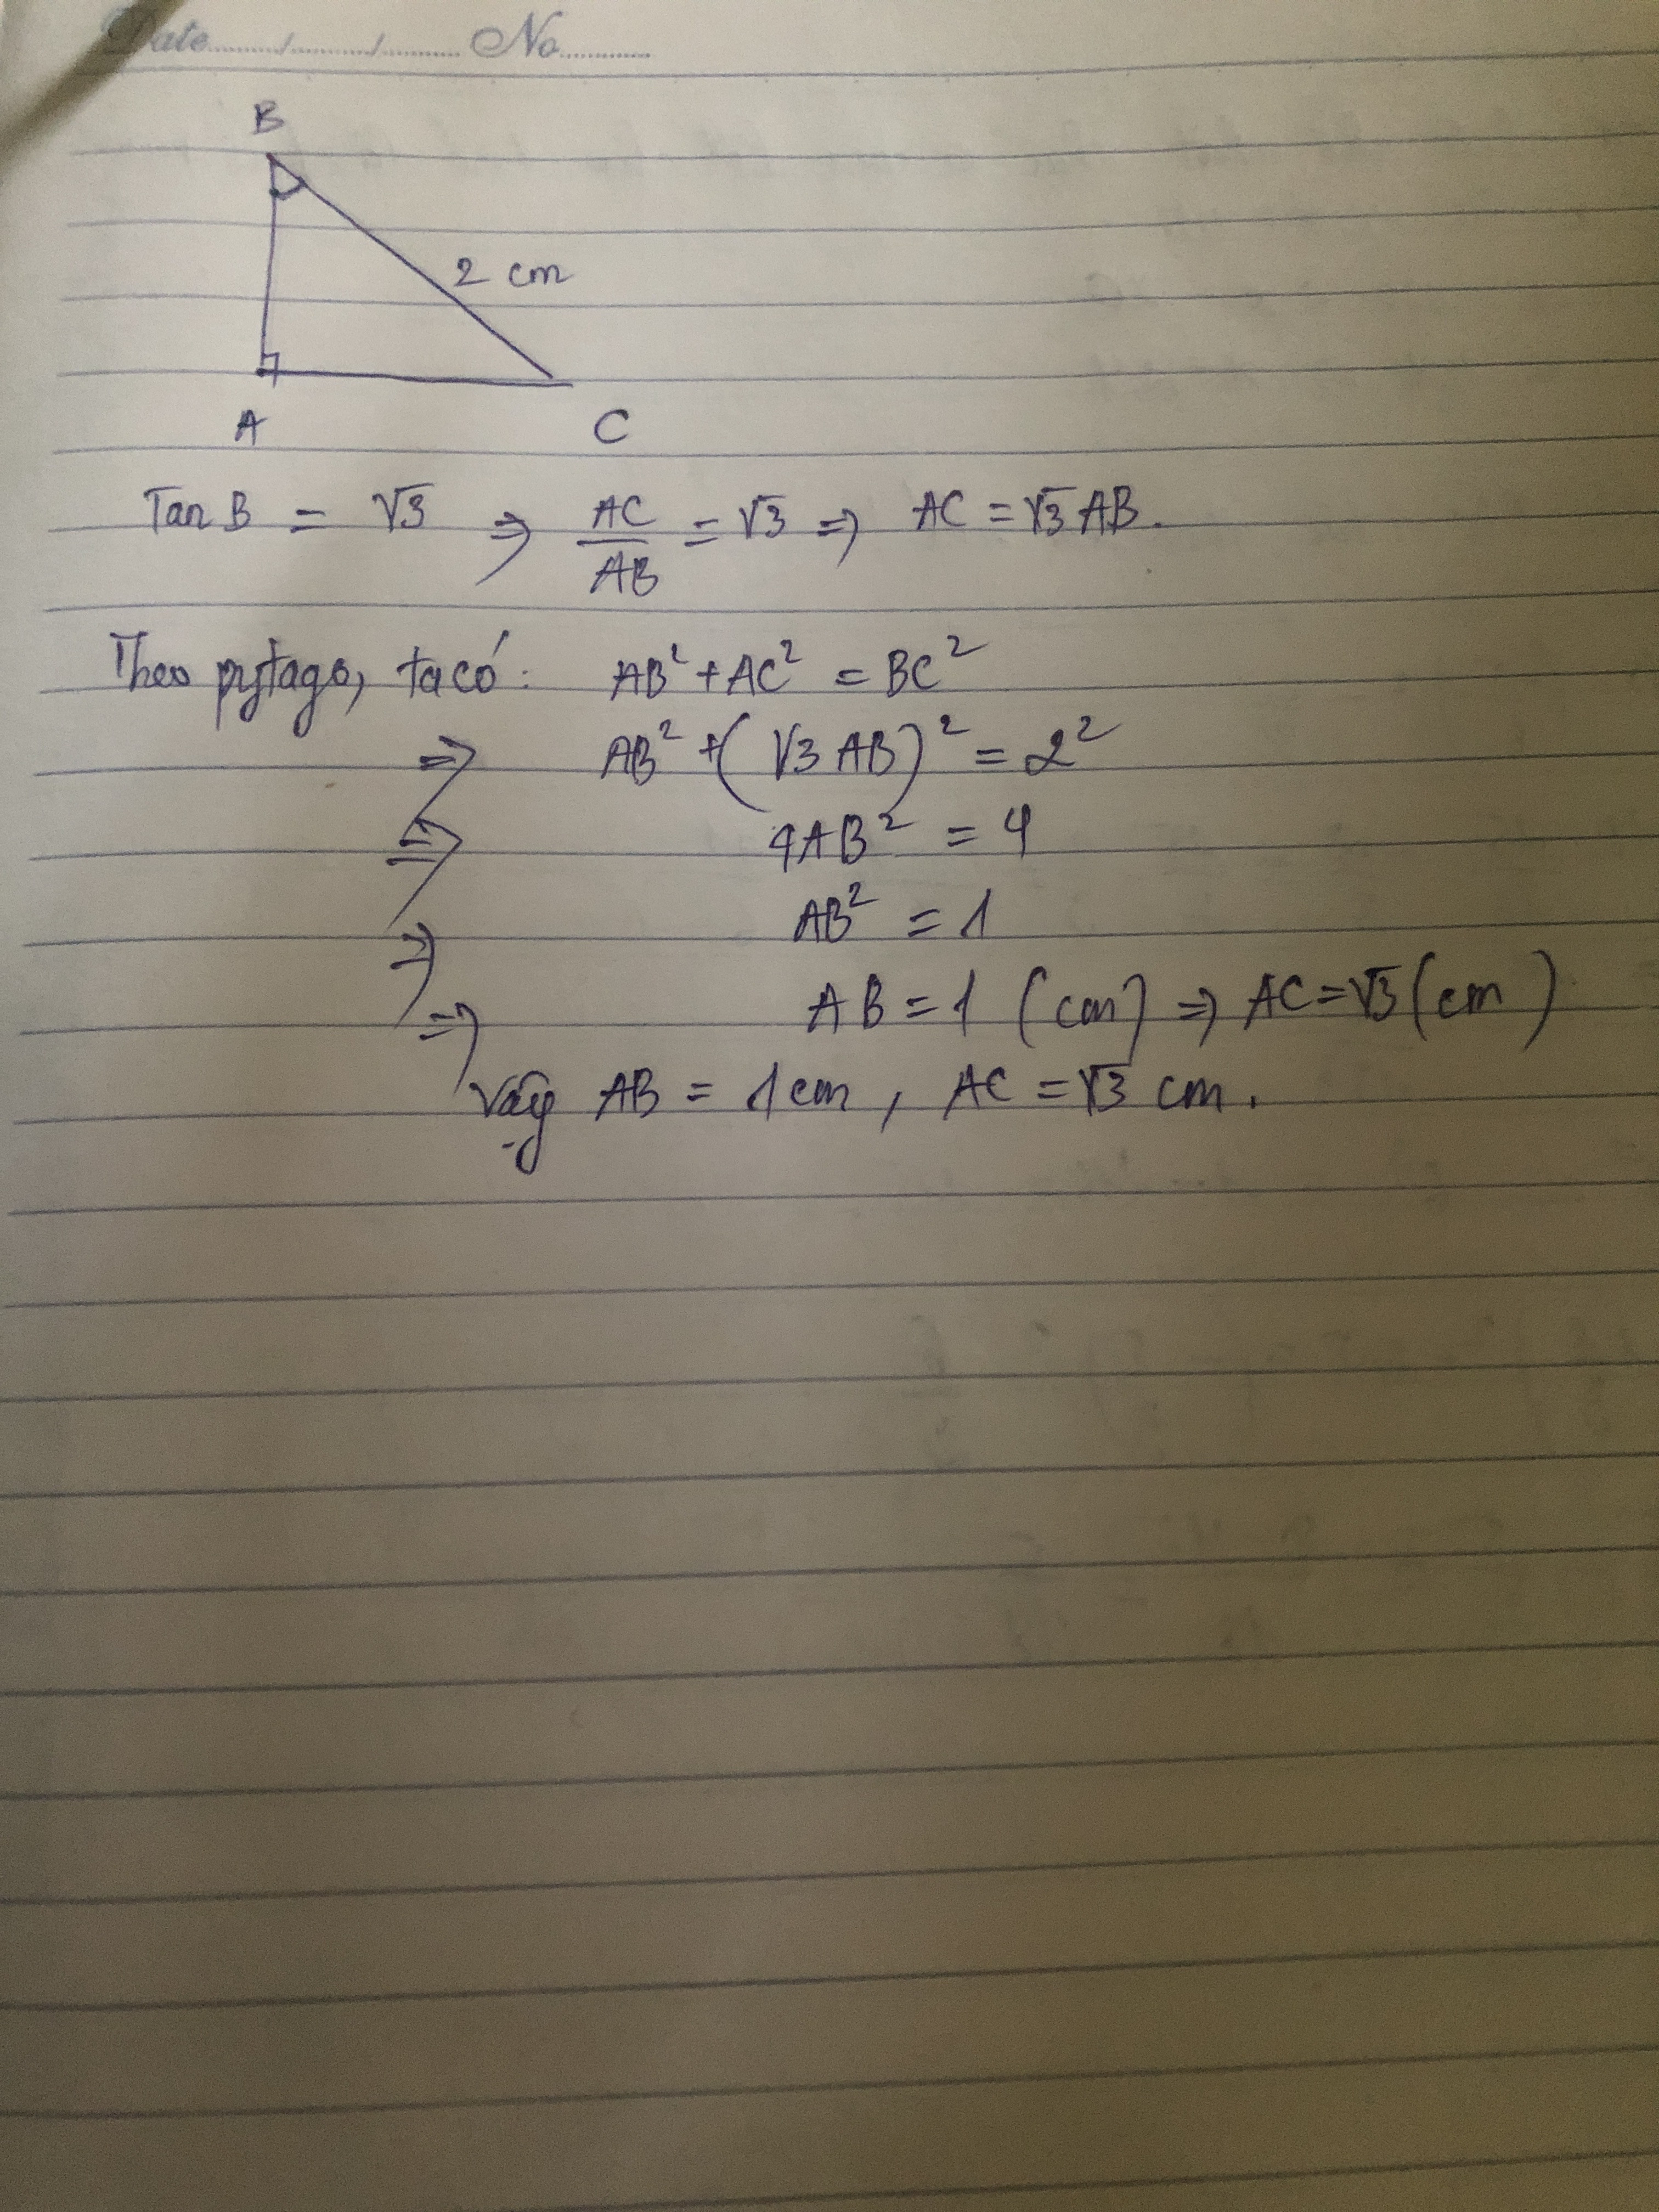 Date ...../...../..... No .....
B
2 cm
A C
Tan B = √3 => AC/AB = √3 => AC = √3 AB.
Theo pytago, ta có: AB² + AC² = BC²
=> AB² + (√3 AB)² = 2²
=> 4AB² = 4
=> AB² = 1
=> AB = 1 (cm) => AC = √3 (cm)
Vậy AB = 1 cm, AC = √3 cm.